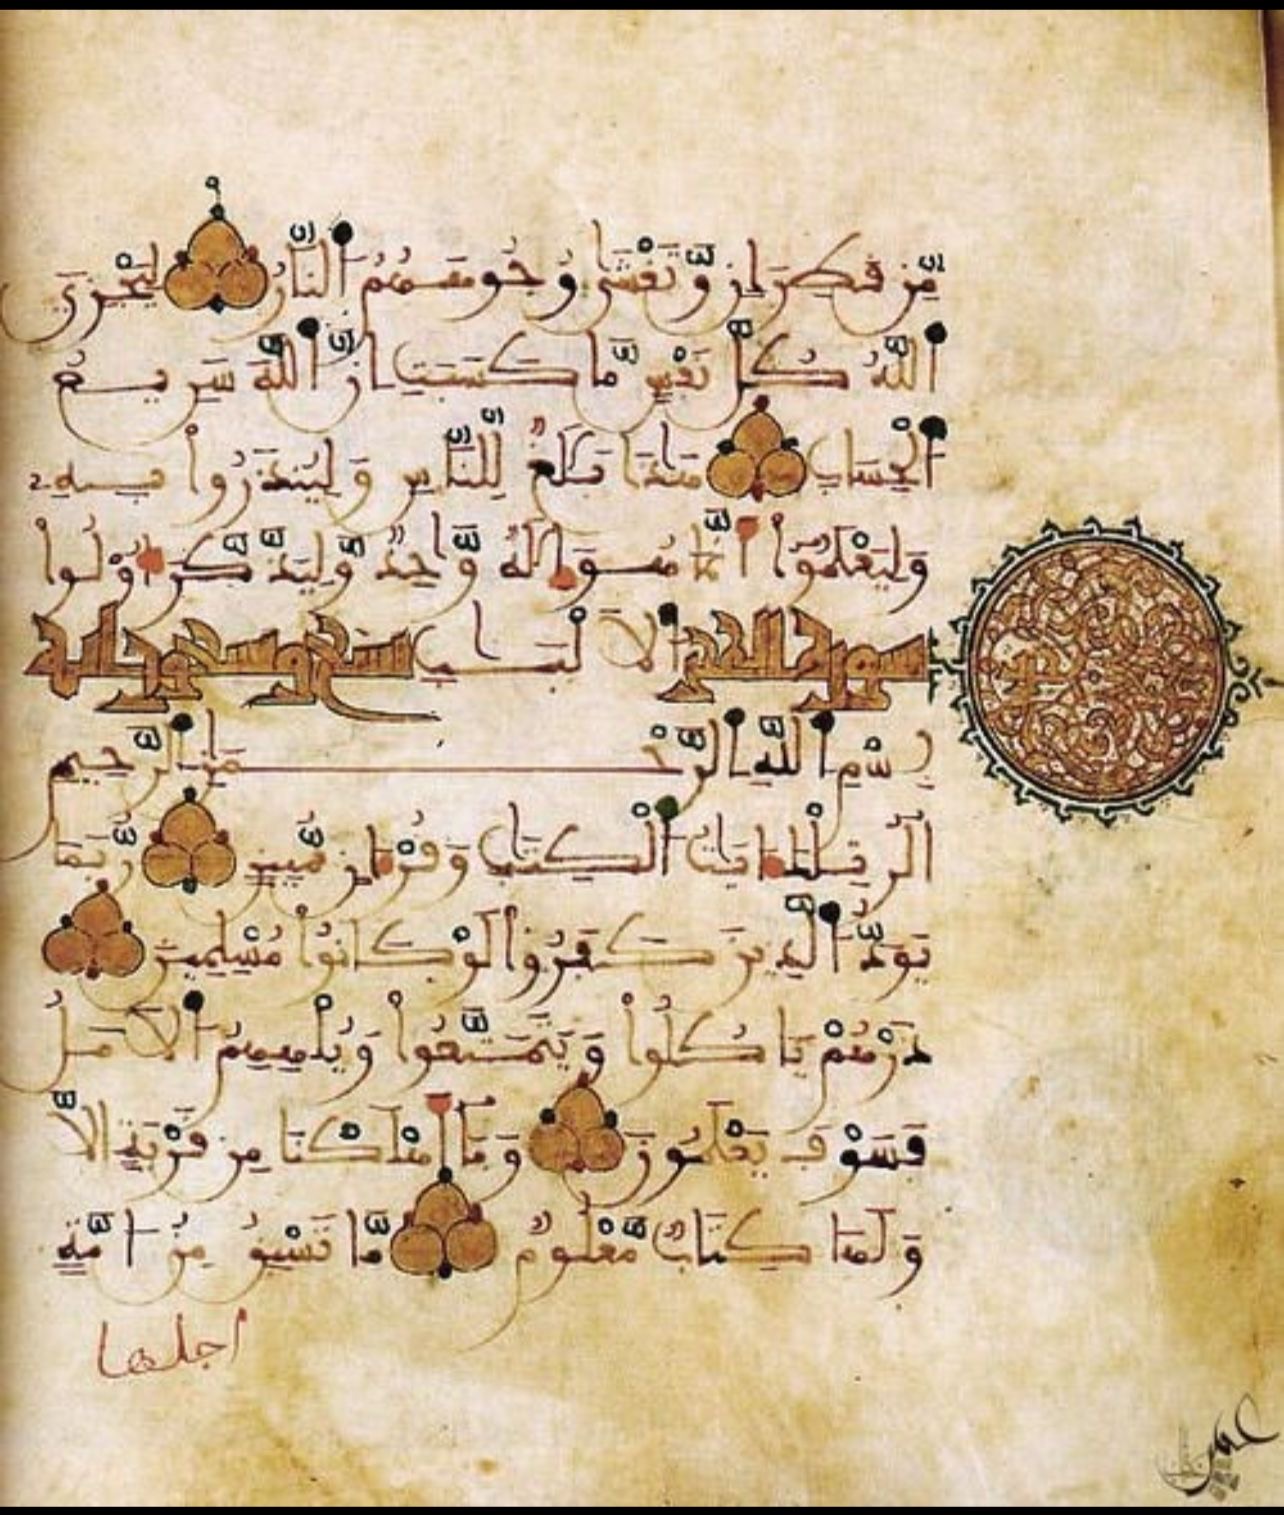 مِّن قَطِرَانٍ وَّتَغْشَىٰ وُجُوهَهُمُ النَّارُ لِيَجْزِيَ
اللَّهُ كُلَّ نَفْسٍ مَّا كَسَبَتِ اِنَّ اللَّهَ سَرِيعُ
الْحِسَابِ هَٰذَا بَلَٰغٌ لِّلنَّاسِ وَلِيُنذَرُواْ بِهِ
وَلِيَعْلَمُوٓاْ أَنَّمَا هُوَ إِلَٰهٌ وَّٰحِدٌ وَّلِيَذَّكَّرَ أُوْلُواْ
سورة الحجر الاَلْبَٰبِ تسع وتسعون اية
بِسْمِ اللَّهِ الرَّحْمَٰنِ الرَّحِيمِ
الٓر تِلْكَ ءَايَٰتُ الْكِتَٰبِ وَقُرْءَانٍ مُّبِينٍ رُّبَمَا
يَوَدُّ الَّذِينَ كَفَرُواْ لَوْ كَانُواْ مُسْلِمِينَ
ذَرْهُمْ يَاكُلُواْ وَيَتَمَتَّعُواْ وَيُلْهِهِمُ الاَمَلُ
فَسَوْفَ يَعْلَمُونَ وَمَآ أَهْلَكْنَا مِن قَرْيَةٍ اِلاَّ
وَلَهَا كِتَابٌ مَّعْلُومٌ مَّا تَسْبِقُ مِنُ امَّةٍ
اجلها